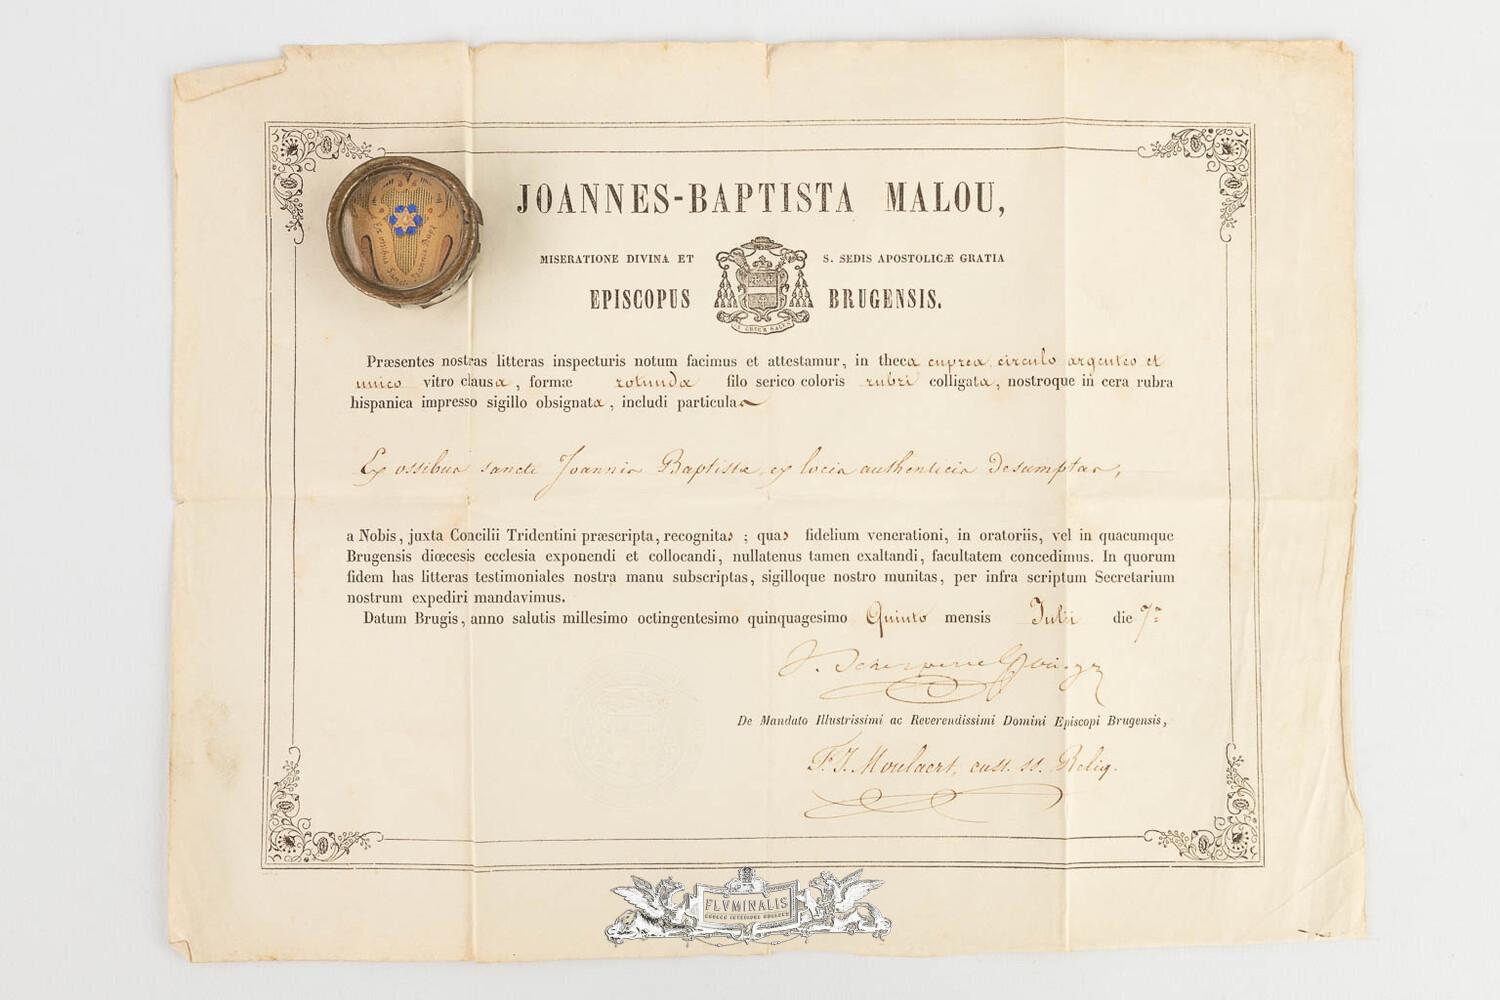 JOANNES-BAPTISTA MALOU,
MISERATIONE DIVINA ET S. SEDIS APOSTOLICÆ GRATIA
EPISCOPUS BRUGENSIS.
Præsentes nostras litteras inspecturis notum facimus et attestamur, in theca cuprea, circulo argenteo et
unico vitro clausa, formæ rotunda filo serico coloris rubri colligata, nostroque in cera rubra
hispanica impresso sigillo obsignata, includi particulas
Ex ossibus sancti Joannis Baptistæ ex locis authenticis desumptas,
a Nobis, juxta Concilii Tridentini præscripta, recognitas ; quas fidelium venerationi, in oratoriis, vel in quacumque
Brugensis diœcesis ecclesia exponendi et collocandi, nullatenus tamen exaltandi, facultatem concedimus. In quorum
fidem has litteras testimoniales nostra manu subscriptas, sigilloque nostro munitas, per infra scriptum Secretarium
nostrum expediri mandavimus.
Datum Brugis, anno salutis millesimo octingentesimo quinquagesimo Quinto mensis Julii die 7ª
De Mandato Illustrissimi ac Reverendissimi Domini Episcopi Brugensis,
F. J. Moulaert, cust. ss. Reliq.
Ex ossibus Sancti Joannis Bapt
FLVMINALIS